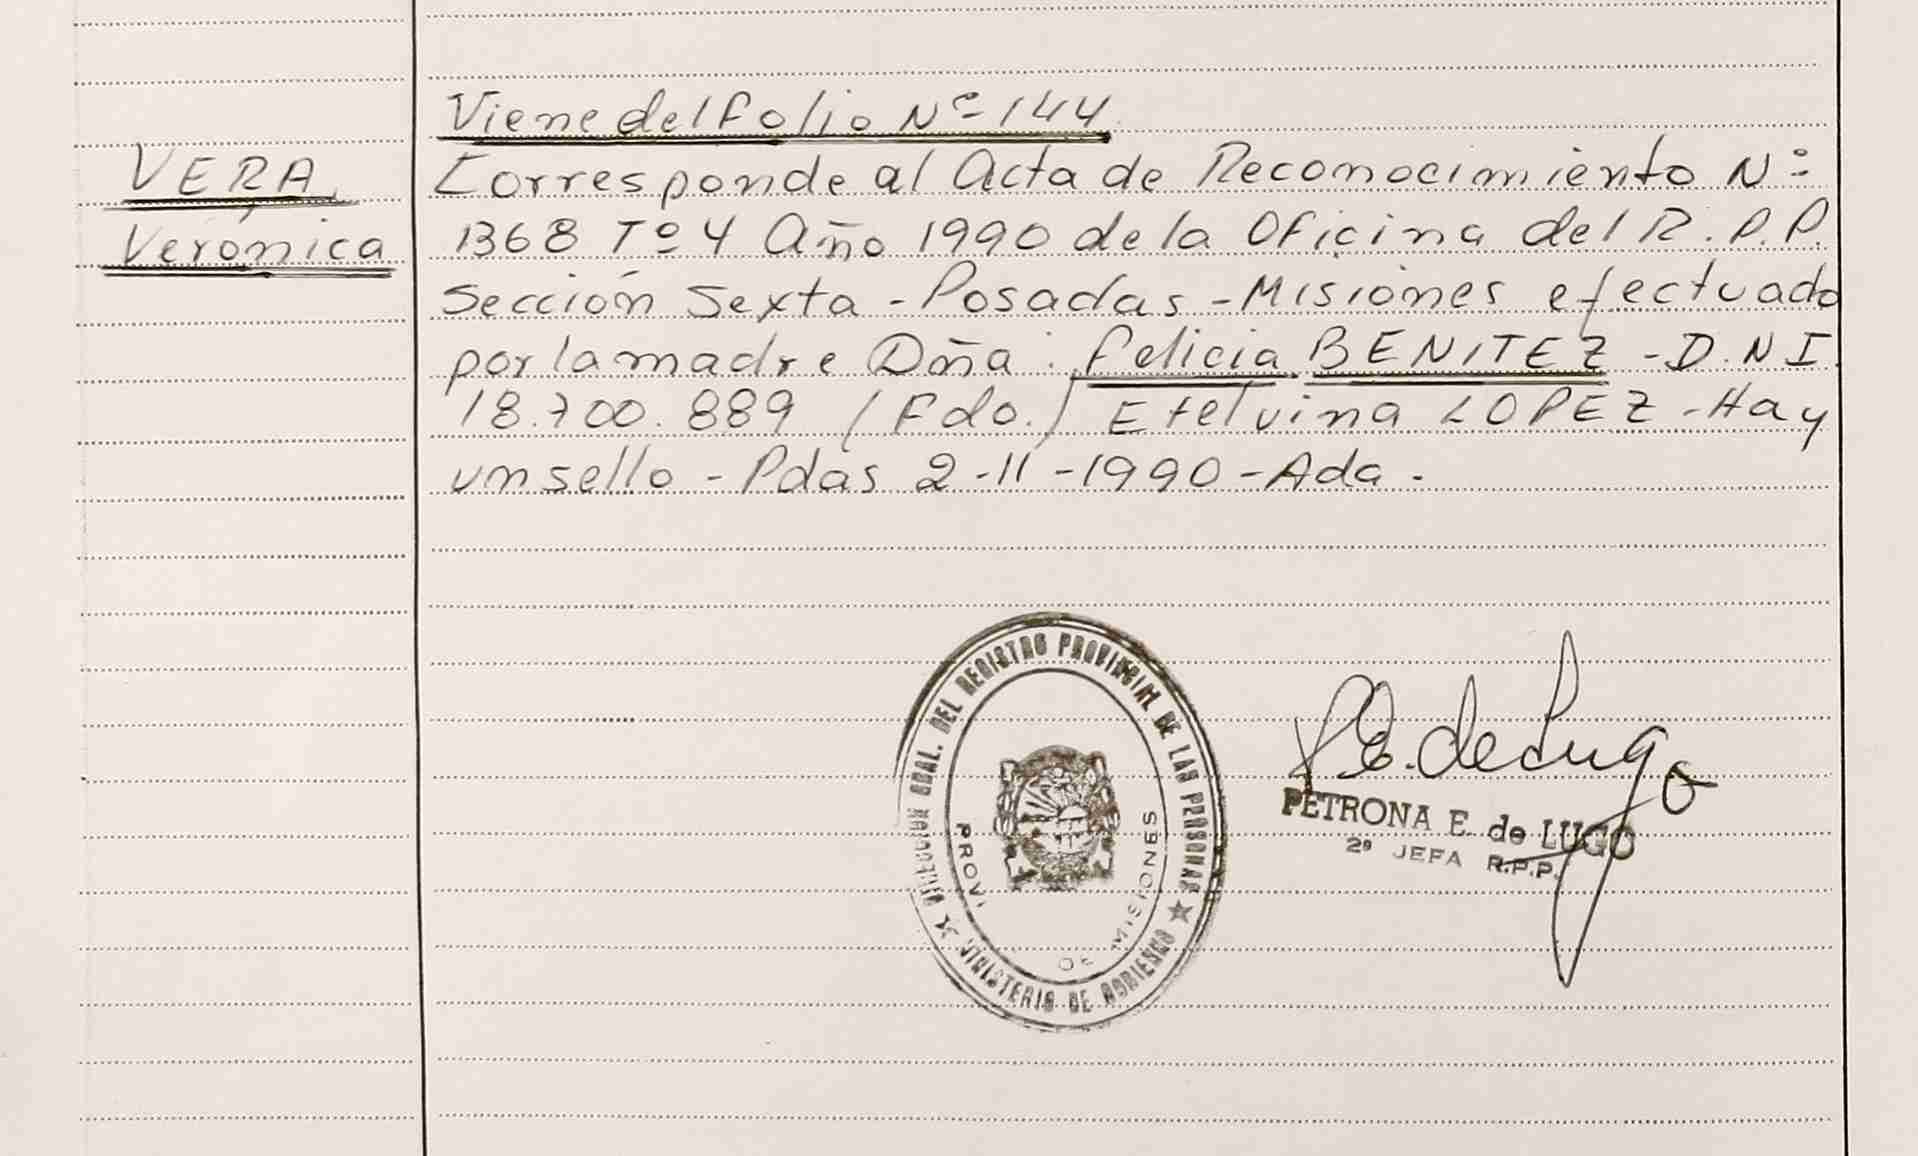 Viene del folio Nº 144
VERA
Verónica
Corresponde al Acta de Reconocimiento Nº
1368 Tº 4 Año 1990 de la Oficina del R.P.P.
Sección Sexta - Posadas - Misiones efectuado
por la madre Dña: Felicia BENITEZ - D.N.I.
18.700.889 (Fdo.) Etelvina LOPEZ - Hay
un sello - Pdas 2-11-1990 - Ada.
GRAL. DEL REGISTRO PROVINCIAL DE LAS PERSONAS
MINISTERIO DE GOBIERNO
DE MISIONES
P.E. de Lugo
PETRONA E. de LUGO
2º JEFA R.P.P.